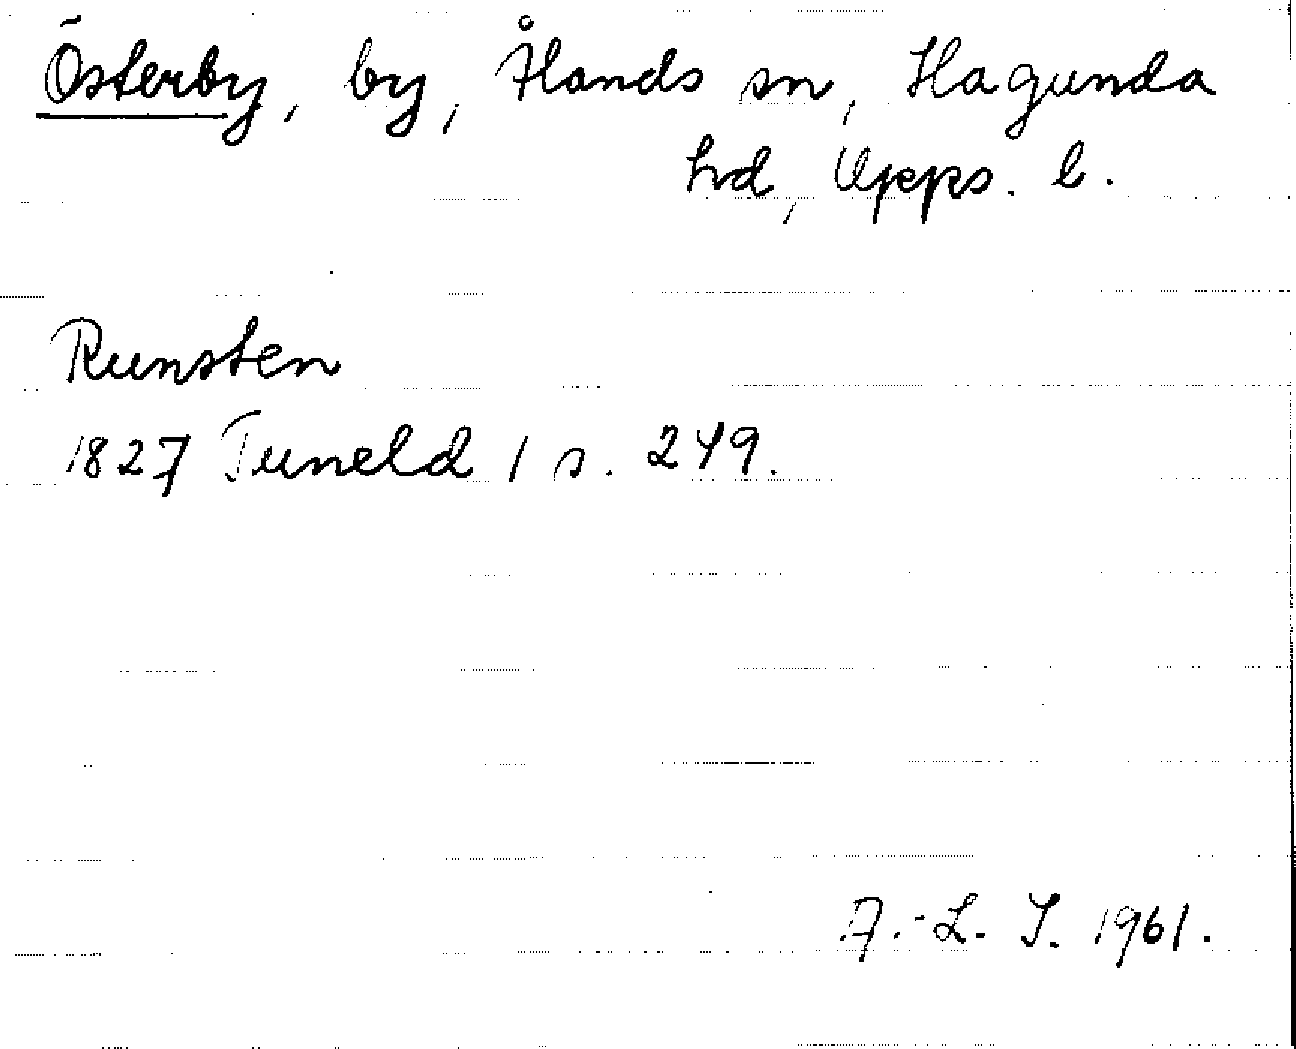 Österby, by, Ålands sn, Hagunda
hd, Upps. l.
Runsten
1827 Tuneld 1 s. 249.
A.-L. S. 1961.